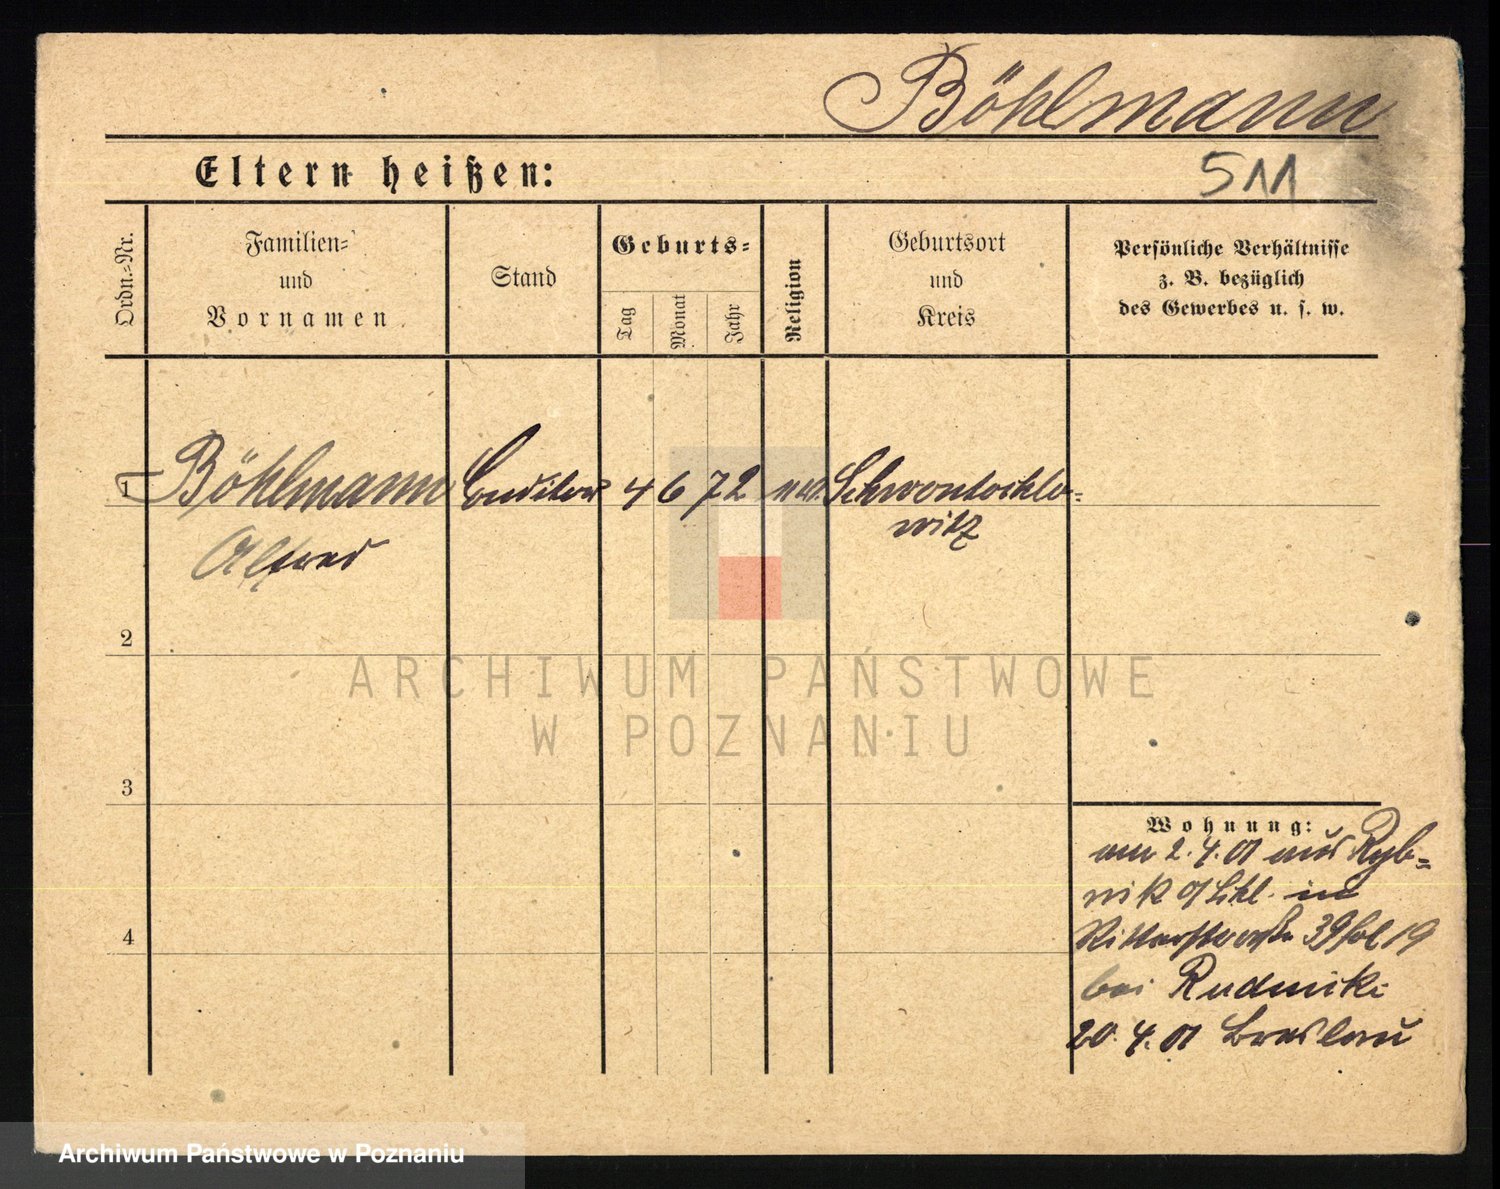 Böhlmann
Eltern heißen:
511
Ordn.-Nr.
Familien-
und
Vornamen
Stand
Geburts-
Tag
Monat
Jahr
Religion
Geburtsort
und
Kreis
Persönliche Verhältnisse
z. B. bezüglich
des Gewerbes u. s. w.
1 Böhlmann Conditor 4 6 72 Schwontochlo-
witz
Alfred
2
ARCHIWUM PAŃSTWOWE
W POZNANIU
3
Wohnung:
am 2.4.01 aus Ryb-
nik o/Schl. in
Ritterstraße 39 19
4
bei Rudnicki
20.4.01 Breslau
Archiwum Państwowe w Poznaniu